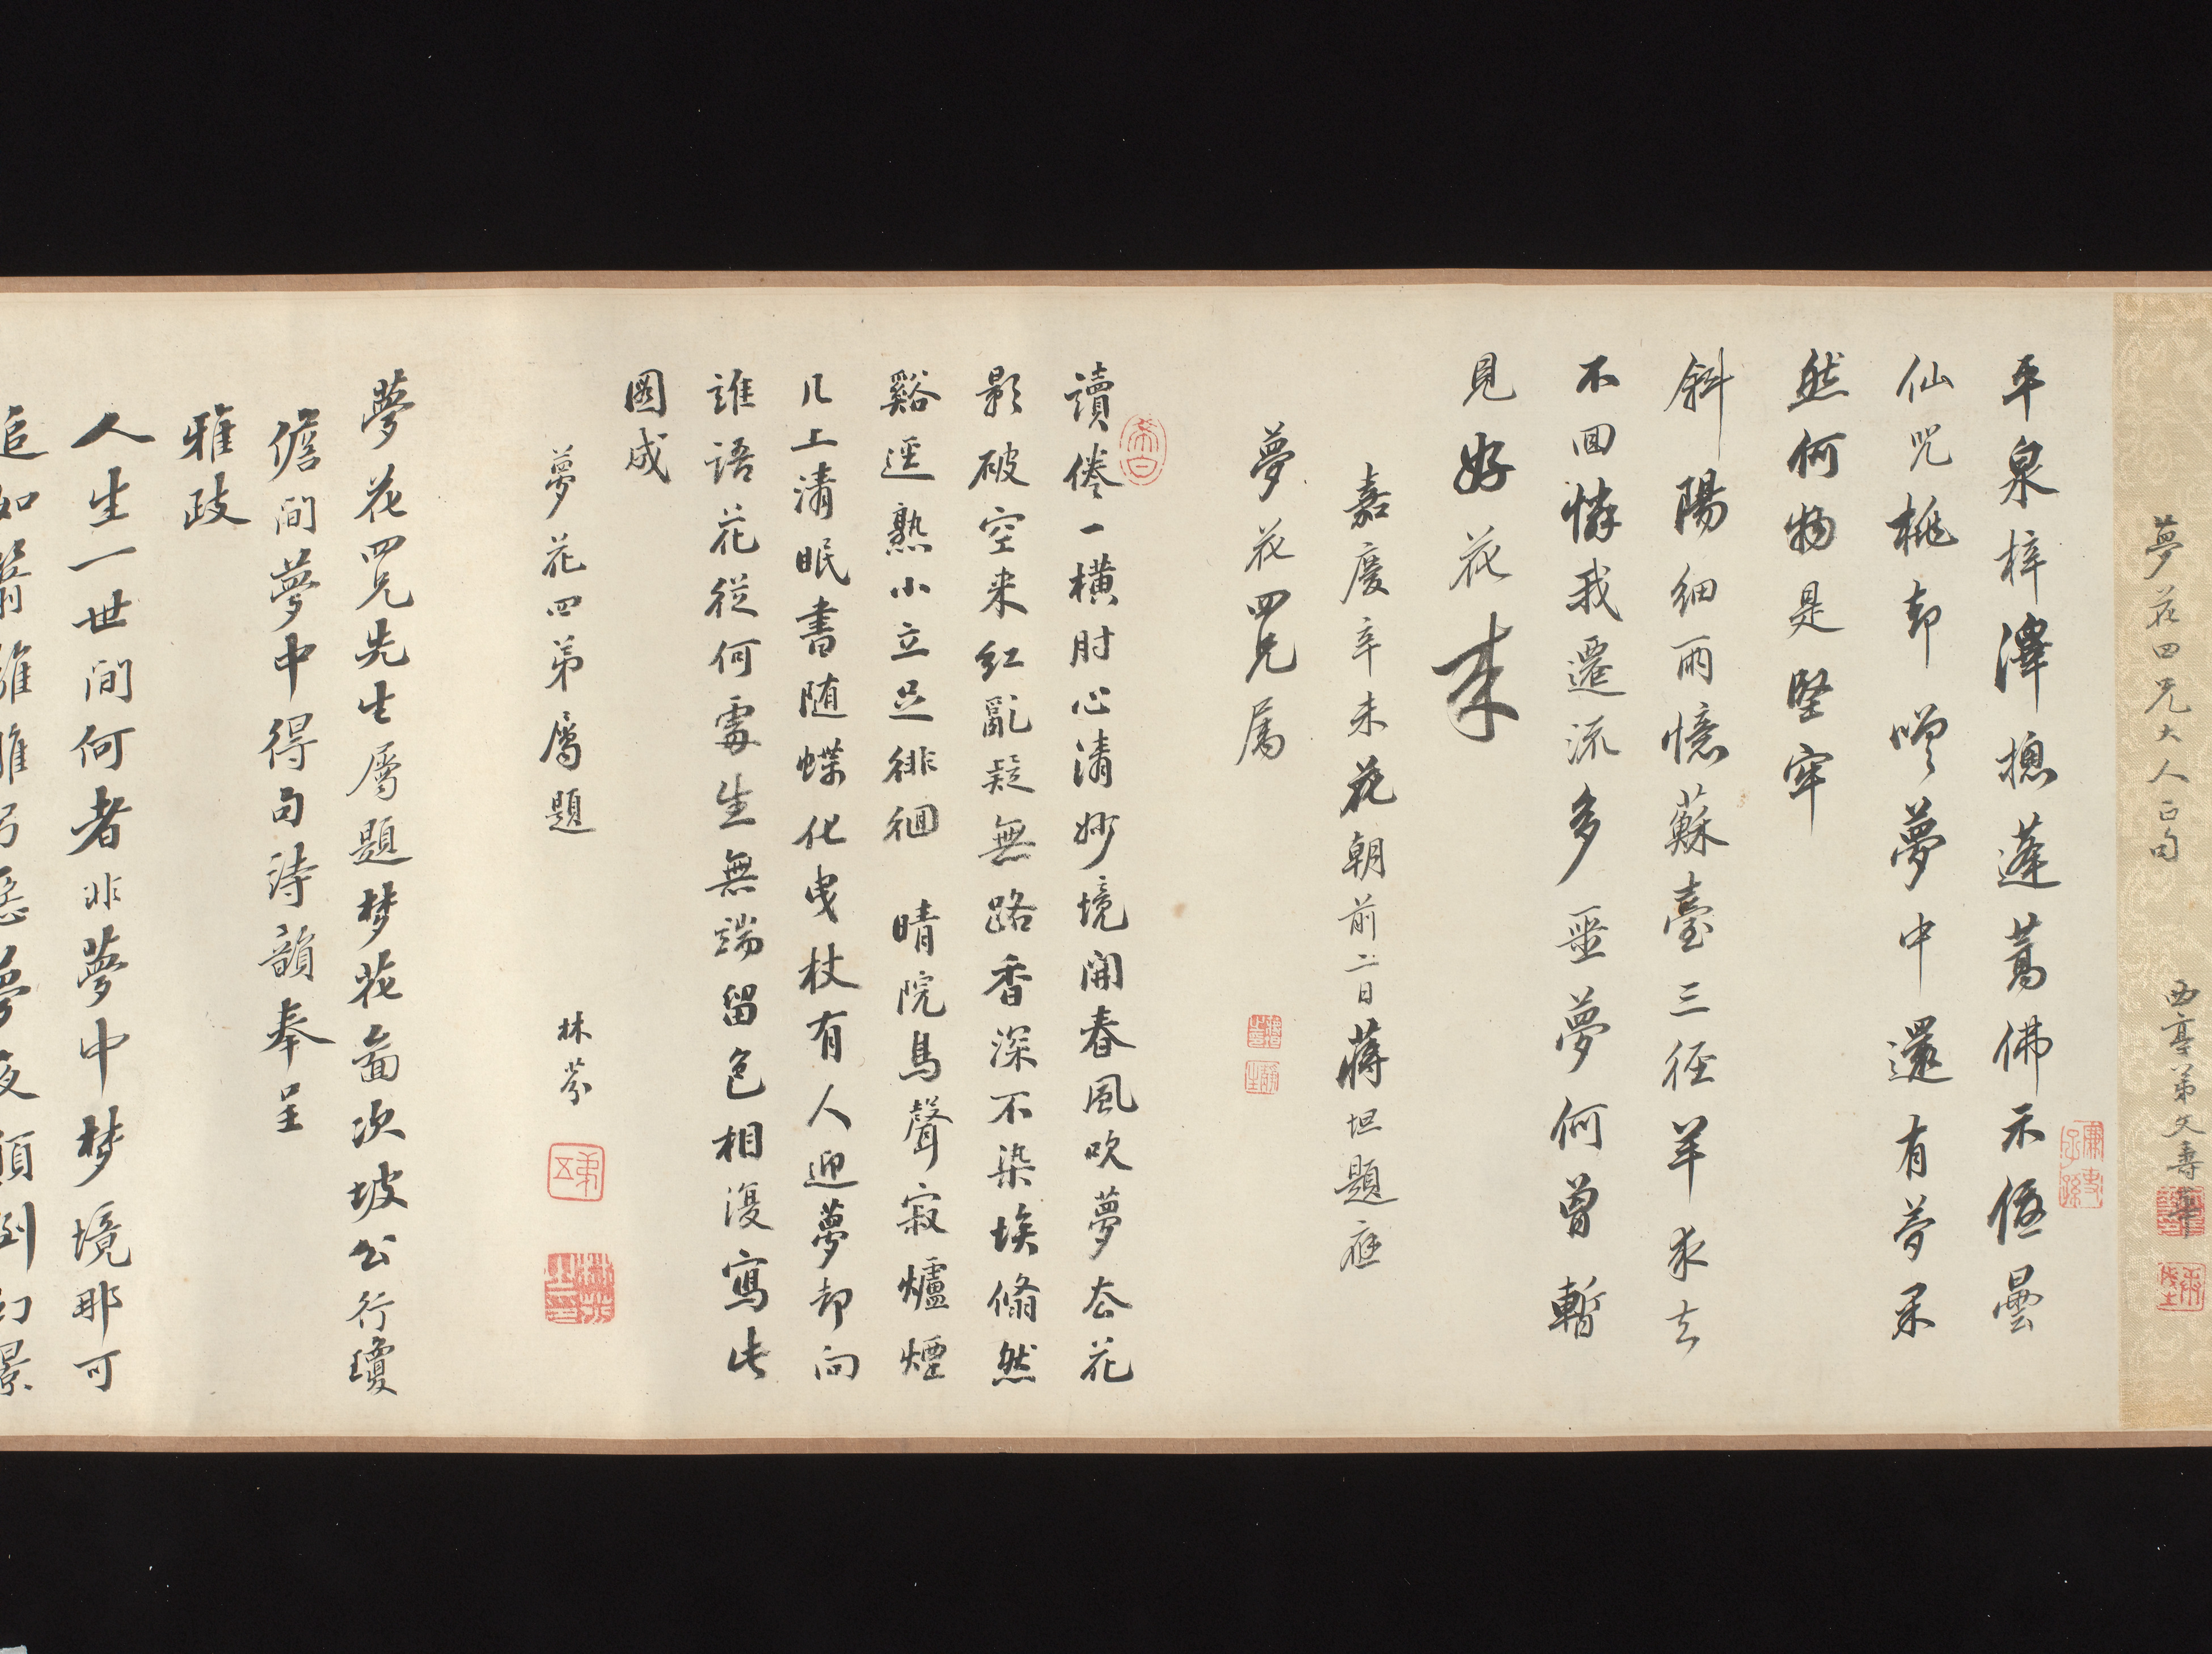 夢花四兄大人正句
西亭弟文壽華
平泉梓澤摠蓬蒿佛示優曇
仙咒桃却嘆夢中還有夢果
然何物是堅牢
斜陽細雨憶蘇臺三徑羊求去
不回憐我遷流多噩夢何曾暫
見好花來
嘉慶辛未花朝前二日蔣坦題應
夢花四兄属
讀倦一横肘心清妙境開春風吹夢去花
影破空来紅亂疑無路香深不染埃翛然
谿逕熟小立足徘徊 晴院鳥聲寂爐煙
几上清眠書随蝶化曳杖有人迎夢却向
誰語花從何處生無端留色相漫寫此
圖成
夢花四弟屬題
林芬
夢花四兄先生屬題梦花啚次坡公行瓊
儋間夢中得句詩韻奉呈
雅政
人生一世間何者非夢中梦境那可